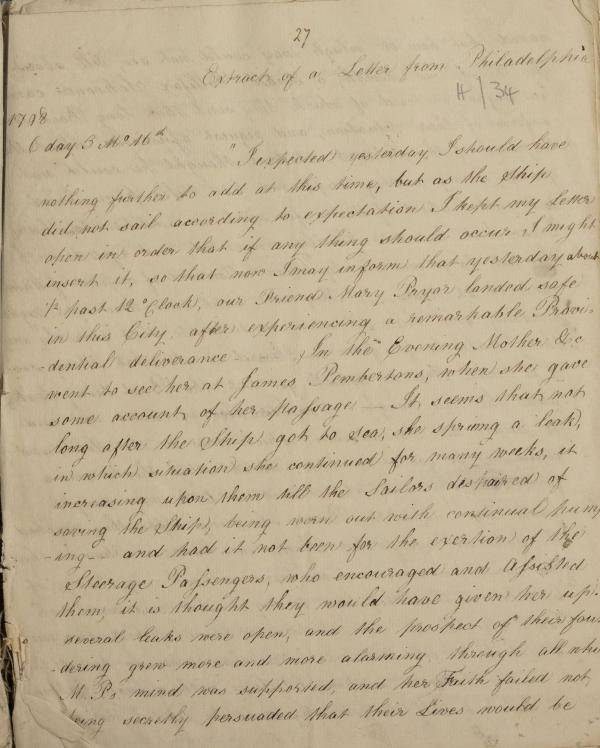 27
Extract of a Letter from Philadelphia
H/34
1798
6 day 3 Mo 16th
"I expected yesterday I should have
nothing further to add at this time, but as the Ship
did not sail according to expectation I kept my Letter
open in order that if any thing should occur I might
insert it, so that now I may inform that yesterday about
½ past 12 oClock, our Friend Mary Pryor landed safe
in this City after experiencing a remarkable Provi-
-dential deliverance - In the Evening Mother &c
went to see her at James Pembertons, when she gave
some account of her passage — It seems that not
long after the Ship got to Sea, she sprung a leak,
in which situation she continued for many weeks, it
increasing upon them till the Sailors despaired of
saving the Ship, being worn out with continual pump
-ing - and had it not been for the exertion of the
Steerage Passengers, who encouraged and Assisted
them, it is thought they would have given her up -
several leaks were open, and the prospect of their foun
-dering grew more and more alarming through all which
M. Ps mind was supported, and her Faith failed not
being secretly persuaded that their Lives would be